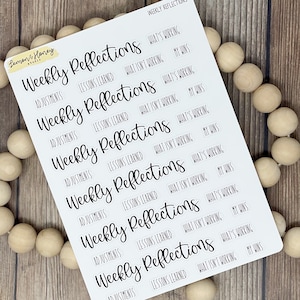 WEEKLY REFLECTIONS
Weekly Reflections WHAT'S WORKING
ADJUSTMENTS LESSONS LEARNED WHAT ISN'T WORKING MY WINS
Weekly Reflections WHAT'S WORKING
ADJUSTMENTS LESSONS LEARNED WHAT ISN'T WORKING MY WINS
Weekly Reflections WHAT'S WORKING
ADJUSTMENTS LESSONS LEARNED WHAT ISN'T WORKING MY WINS
Weekly Reflections WHAT'S WORKING
ADJUSTMENTS LESSONS LEARNED WHAT ISN'T WORKING MY WINS
Weekly Reflections WHAT'S WORKING
ADJUSTMENTS LESSONS LEARNED WHAT ISN'T WORKING MY WINS
Weekly Reflections WHAT'S WORKING
ADJUSTMENTS LESSONS LEARNED WHAT ISN'T WORKING MY WINS